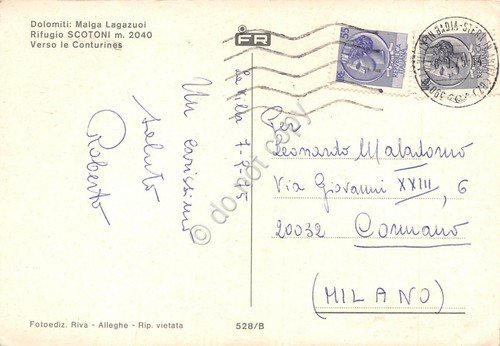 Dolomiti: Malga Lagazuoi
Rifugio SCOTONI m. 2040
Verso le Conturines
FR
La Villa 7-9-75
Un carissimo
saluto
Roberto
Per
Leonardo Maladorno
Via Giovanni XXIII, 6
20032 Cormano
(MILANO)
do not copy
Fotoediz. Riva - Alleghe - Rip. vietata
528/B